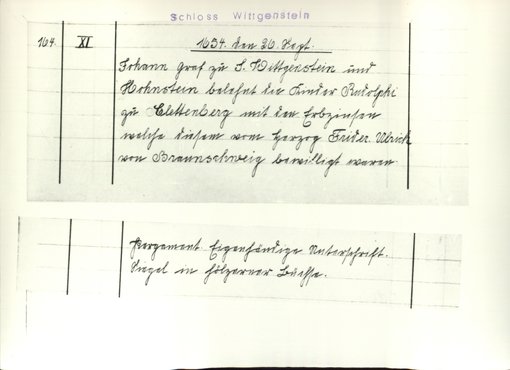 Schloss Wittgenstein
164. XI 1634. den 26. Sept.
Johann Graf zu S. Wittgenstein und
Hohnstein belehnt die Kinder Rudolphi
zu Clettenberg mit den Erbzinsen
welche diesem vom Herzog Frider. Ulrich
von Braunschweig bewilligt waren.
Pergament. Eigenhändige Unterschrift.
Siegel in hölzerner Büchse.